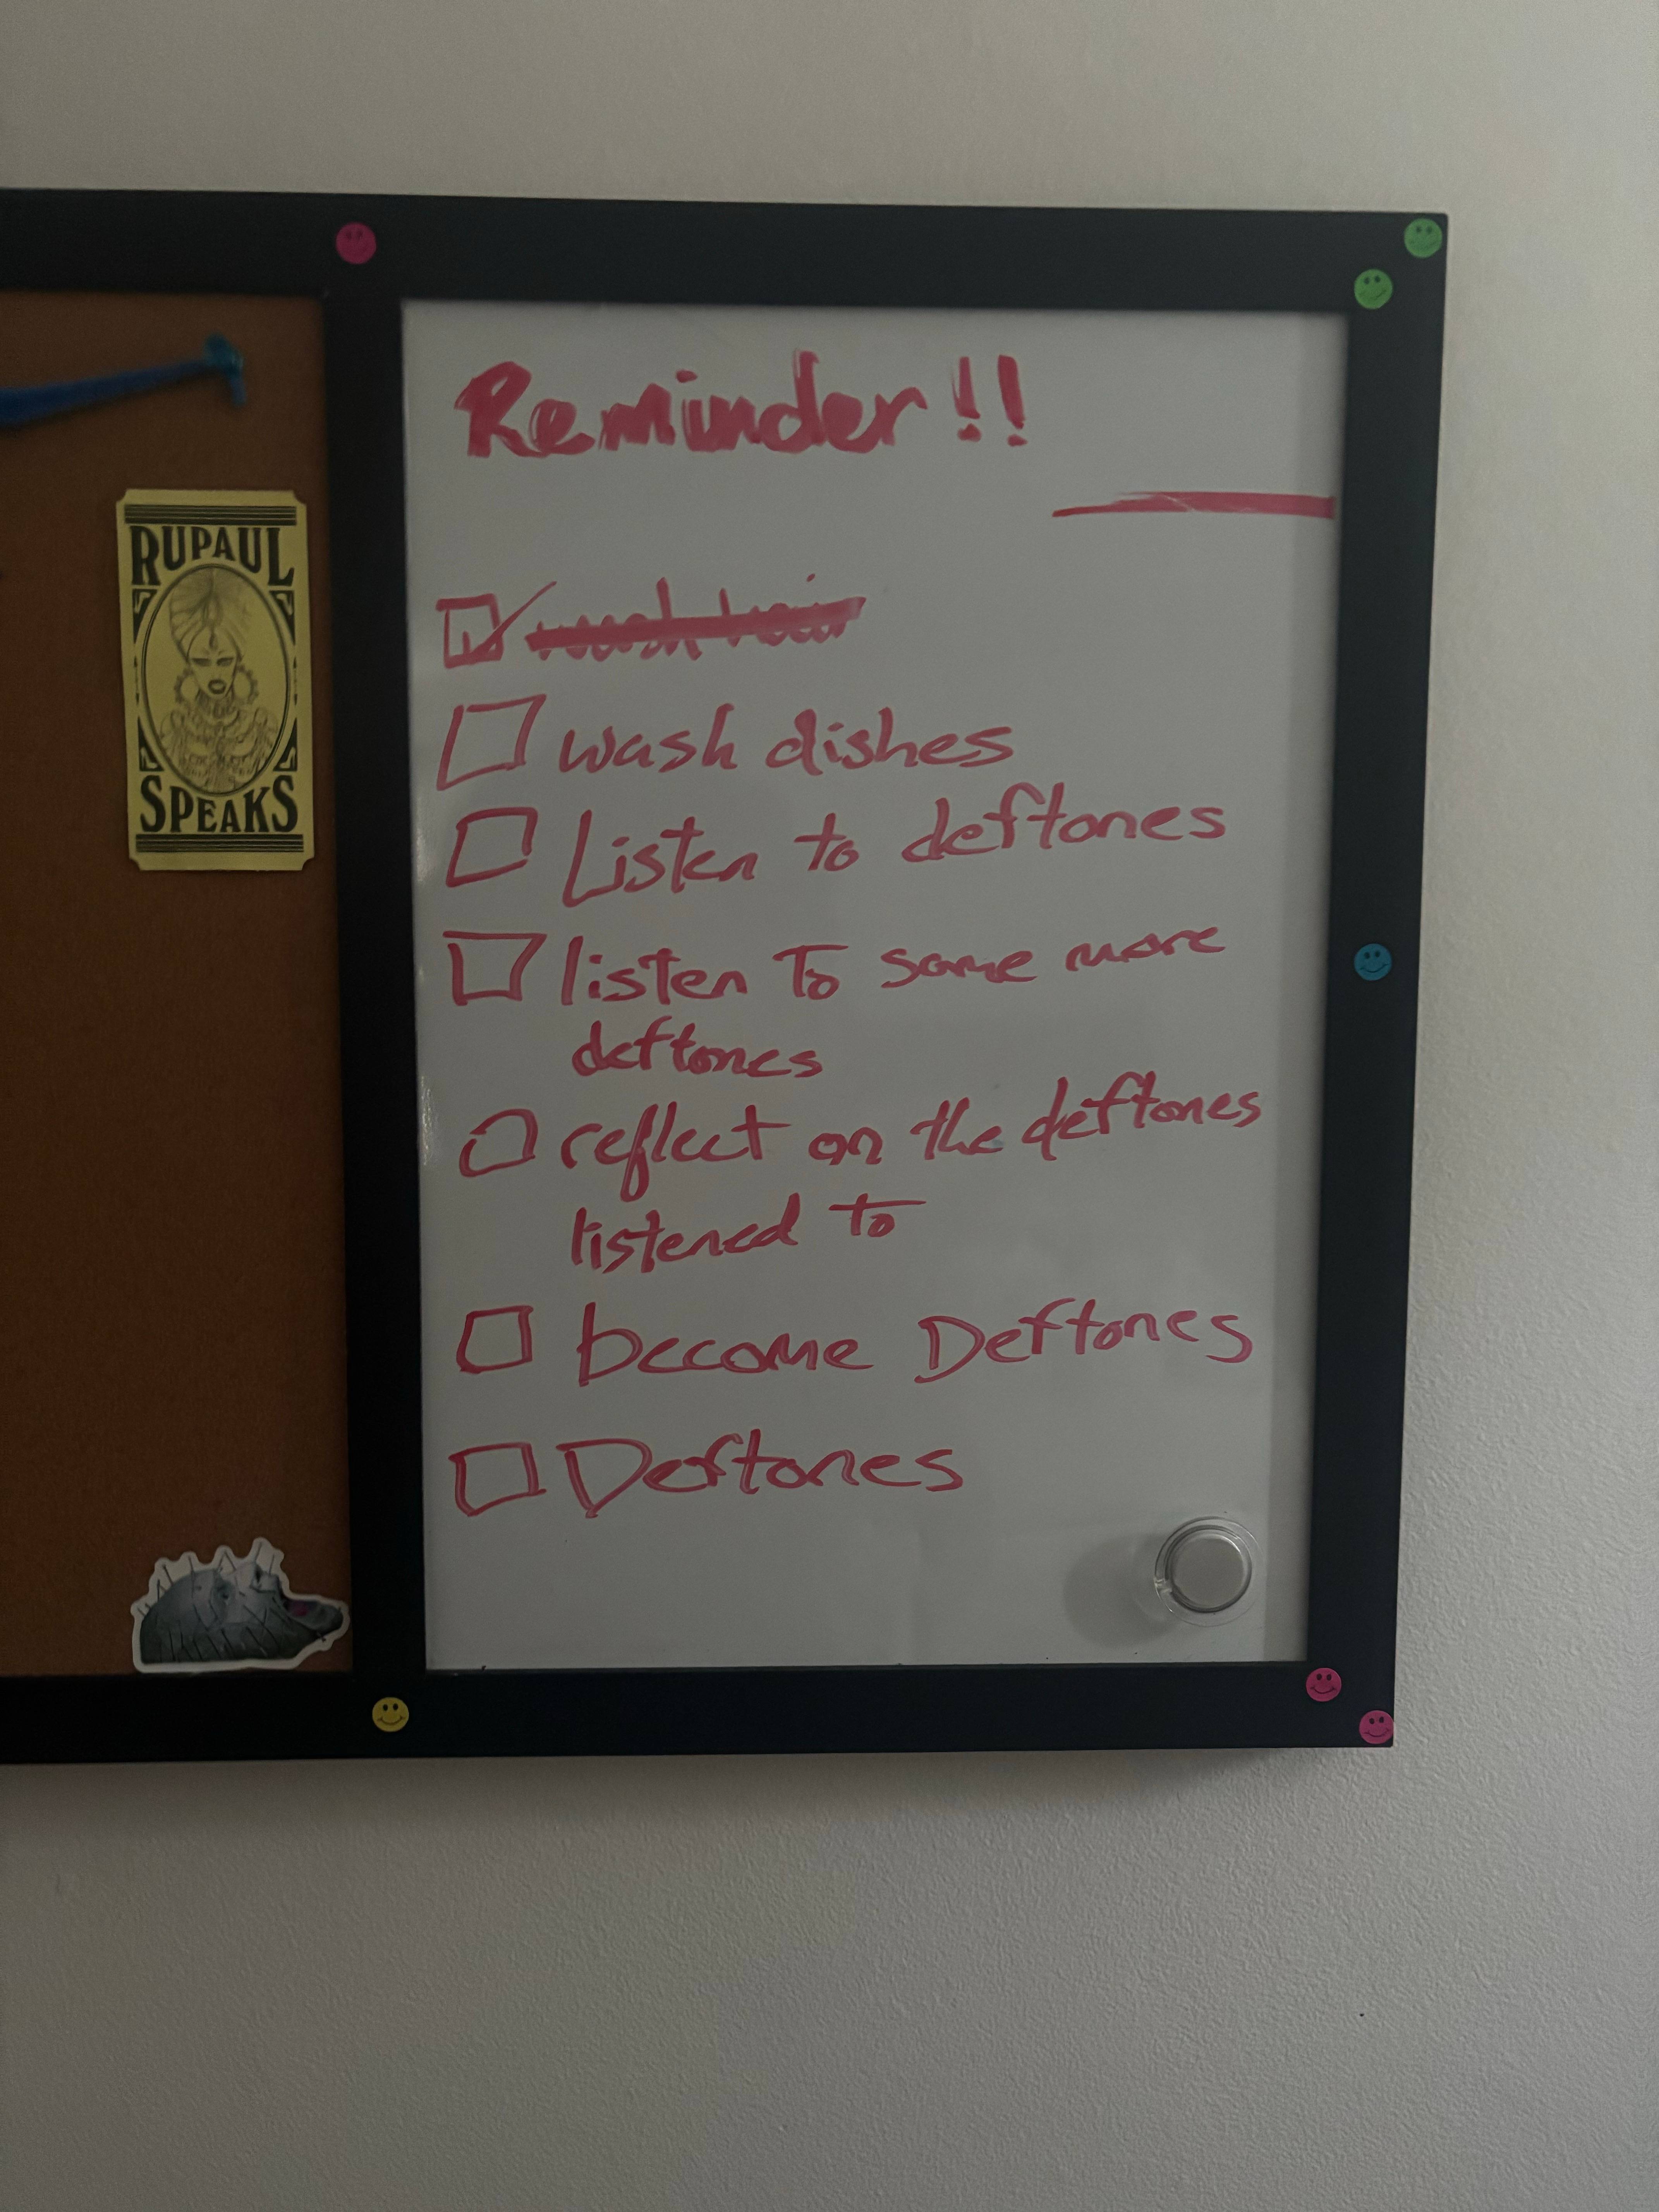 RUPAUL
SPEAKS
Reminder!!
wash hair
wash dishes
Listen to deftones
listen To some more
deftones
reflect on the deftones
listened to
become Deftones
Deftones